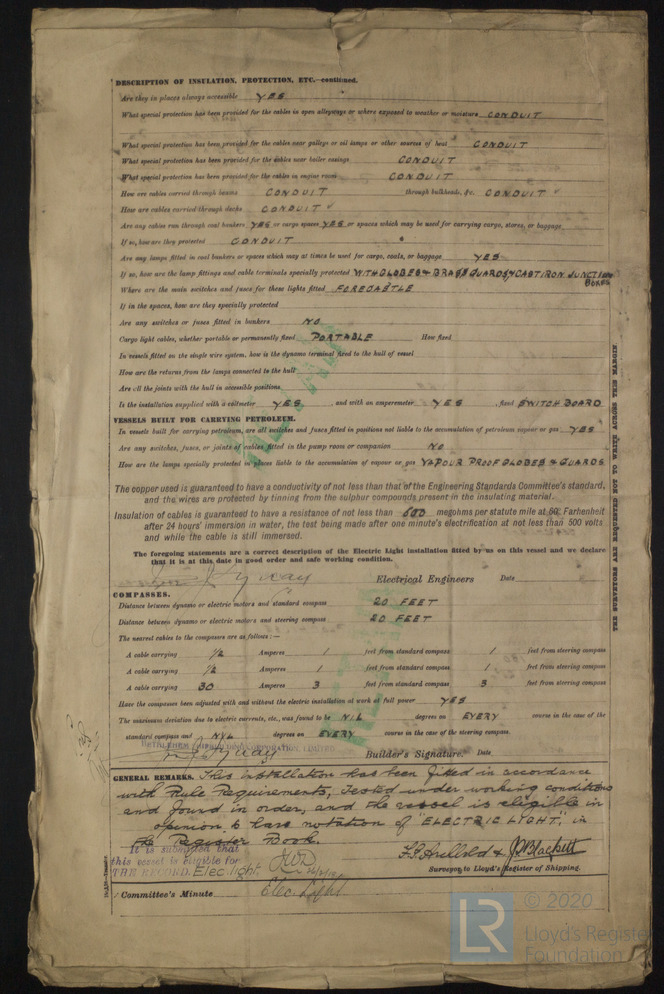 DESCRIPTION OF INSULATION, PROTECTION, ETC.—continued.
Are they in places always accessible YES
What special protection has been provided for the cables in open alleyways or where exposed to weather or moisture CONDUIT
What special protection has been provided for the cables near galleys or oil lamps or other sources of heat CONDUIT
What special protection has been provided for the cables near boiler casings CONDUIT
What special protection has been provided for the cables in engine room CONDUIT
How are cables carried through beams CONDUIT through bulkheads, &c. CONDUIT
How are cables carried through decks CONDUIT
Are any cables run through coal bunkers YES or cargo spaces YES or spaces which may be used for carrying cargo, stores, or baggage
If so, how are they protected CONDUIT
Are any lamps fitted in coal bunkers or spaces which may at times be used for cargo, coals, or baggage YES
If so, how are the lamp fittings and cable terminals specially protected WITH GLOBES & BRASS GUARDS & CAST IRON JUNCTION BOXES
Where are the main switches and fuses for these lights fitted FORECASTLE
If in the spaces, how are they specially protected
Are any switches or fuses fitted in bunkers NO
Cargo light cables, whether portable or permanently fixed PORTABLE How fixed
In vessels fitted on the single wire system, how is the dynamo terminal fixed to the hull of vessel
How are the returns from the lamps connected to the hull
Are all the joints with the hull in accessible positions
Is the installation supplied with a voltmeter YES, and with an amperemeter YES, fixed SWITCH BOARD
VESSELS BUILT FOR CARRYING PETROLEUM.
In vessels built for carrying petroleum, are all switches and fuses fitted in positions not liable to the accumulation of petroleum vapour or gas YES
Are any switches, fuses, or joints of cables fitted in the pump room or companion NO
How are the lamps specially protected in places liable to the accumulation of vapour or gas VAPOUR PROOF GLOBES & GUARDS
The copper used is guaranteed to have a conductivity of not less than that of the Engineering Standards Committee's standard,
and the wires are protected by tinning from the sulphur compounds present in the insulating material.
Insulation of cables is guaranteed to have a resistance of not less than 600 megohms per statute mile at 60° Farhenheit
after 24 hours' immersion in water, the test being made after one minute's electrification at not less than 500 volts
and while the cable is still immersed.
The foregoing statements are a correct description of the Electric Light installation fitted by us on this vessel and we declare
that it is at this date in good order and safe working condition.
Electrical Engineers Date
COMPASSES.
Distance between dynamo or electric motors and standard compass 20 FEET
Distance between dynamo or electric motors and steering compass 20 FEET
The nearest cables to the compasses are as follows:—
A cable carrying 1/2 Amperes 1 feet from standard compass 1 feet from steering compass
A cable carrying 1/2 Amperes 1 feet from standard compass 1 feet from steering compass
A cable carrying 30 Amperes 3 feet from standard compass 3 feet from steering compass
Have the compasses been adjusted with and without the electric installation at work at full power YES
The maximum deviation due to electric currents, etc., was found to be NIL degrees on EVERY course in the case of the
standard compass and NIL degrees on EVERY course in the case of the steering compass.
BETHLEHEM SHIPBUILDING CORPORATION, LIMITED
Builder's Signature. Date
GENERAL REMARKS. This installation has been fitted in accordance
with Rule Requirements, tested under working conditions
and found in order, and the vessel is eligible in
opinion to have notation of "ELECTRIC LIGHT," in
the Register Book.
It is submitted that
this vessel is eligible for
THE RECORD. Elec light.
J. Blackett
Surveyor to Lloyd's Register of Shipping.
Committee's Minute Elec. Light
THE SURVEYORS ARE REQUESTED NOT TO WRITE ACROSS THIS MARGIN.
© 2020
LR Lloyd's Register
Foundation